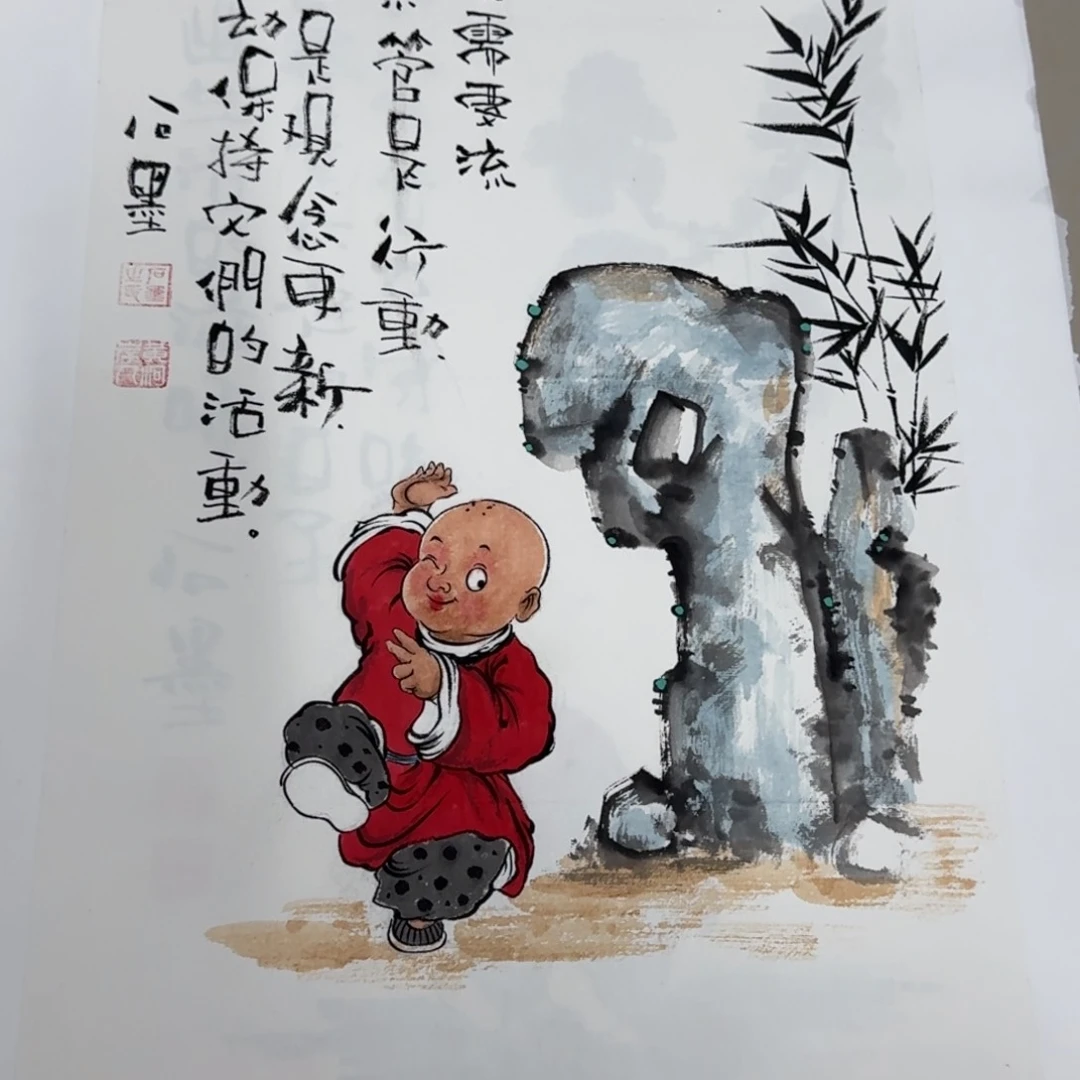 需要流
管是行動,
是观念更新,
保持它們的活動。
石墨